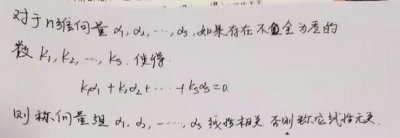 对于n维向量 α₁, α₂, ⋯, αₛ, 如果存在不全为零的
数 k₁, k₂, ⋯, kₛ. 使得.
k₁α₁ + k₂α₂ + ⋯ + kₛαₛ = 0.
则称向量组 α₁, α₂, ⋯, αₛ 线性相关. 否则称它线性无关.